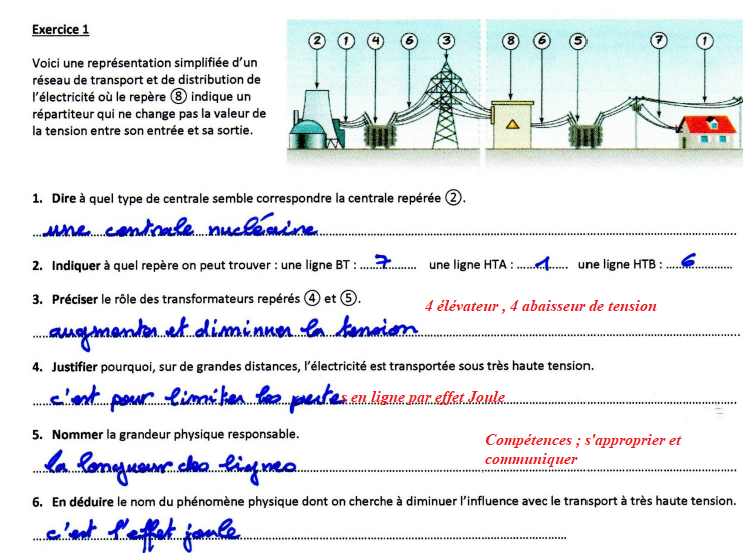 Exercice 1
2 1 4 6 3 8 6 5 7 1
Voici une représentation simplifiée d'un
réseau de transport et de distribution de
l'électricité où le repère ⑧ indique un
répartiteur qui ne change pas la valeur de
la tension entre son entrée et sa sortie.
1. Dire à quel type de centrale semble correspondre la centrale repérée ②.
une centrale nucléaire
2. Indiquer à quel repère on peut trouver : une ligne BT : 7 une ligne HTA : 1 une ligne HTB : 6
3. Préciser le rôle des transformateurs repérés ④ et ⑤.
4 élévateur , 4 abaisseur de tension
augmenter et diminuer la tension
4. Justifier pourquoi, sur de grandes distances, l'électricité est transportée sous très haute tension.
c'est pour limiter les pertes en ligne par effet Joule
5. Nommer la grandeur physique responsable.
Compétences ; s'approprier et
communiquer
la longueur des lignes
6. En déduire le nom du phénomène physique dont on cherche à diminuer l'influence avec le transport à très haute tension.
c'est l'effet joule